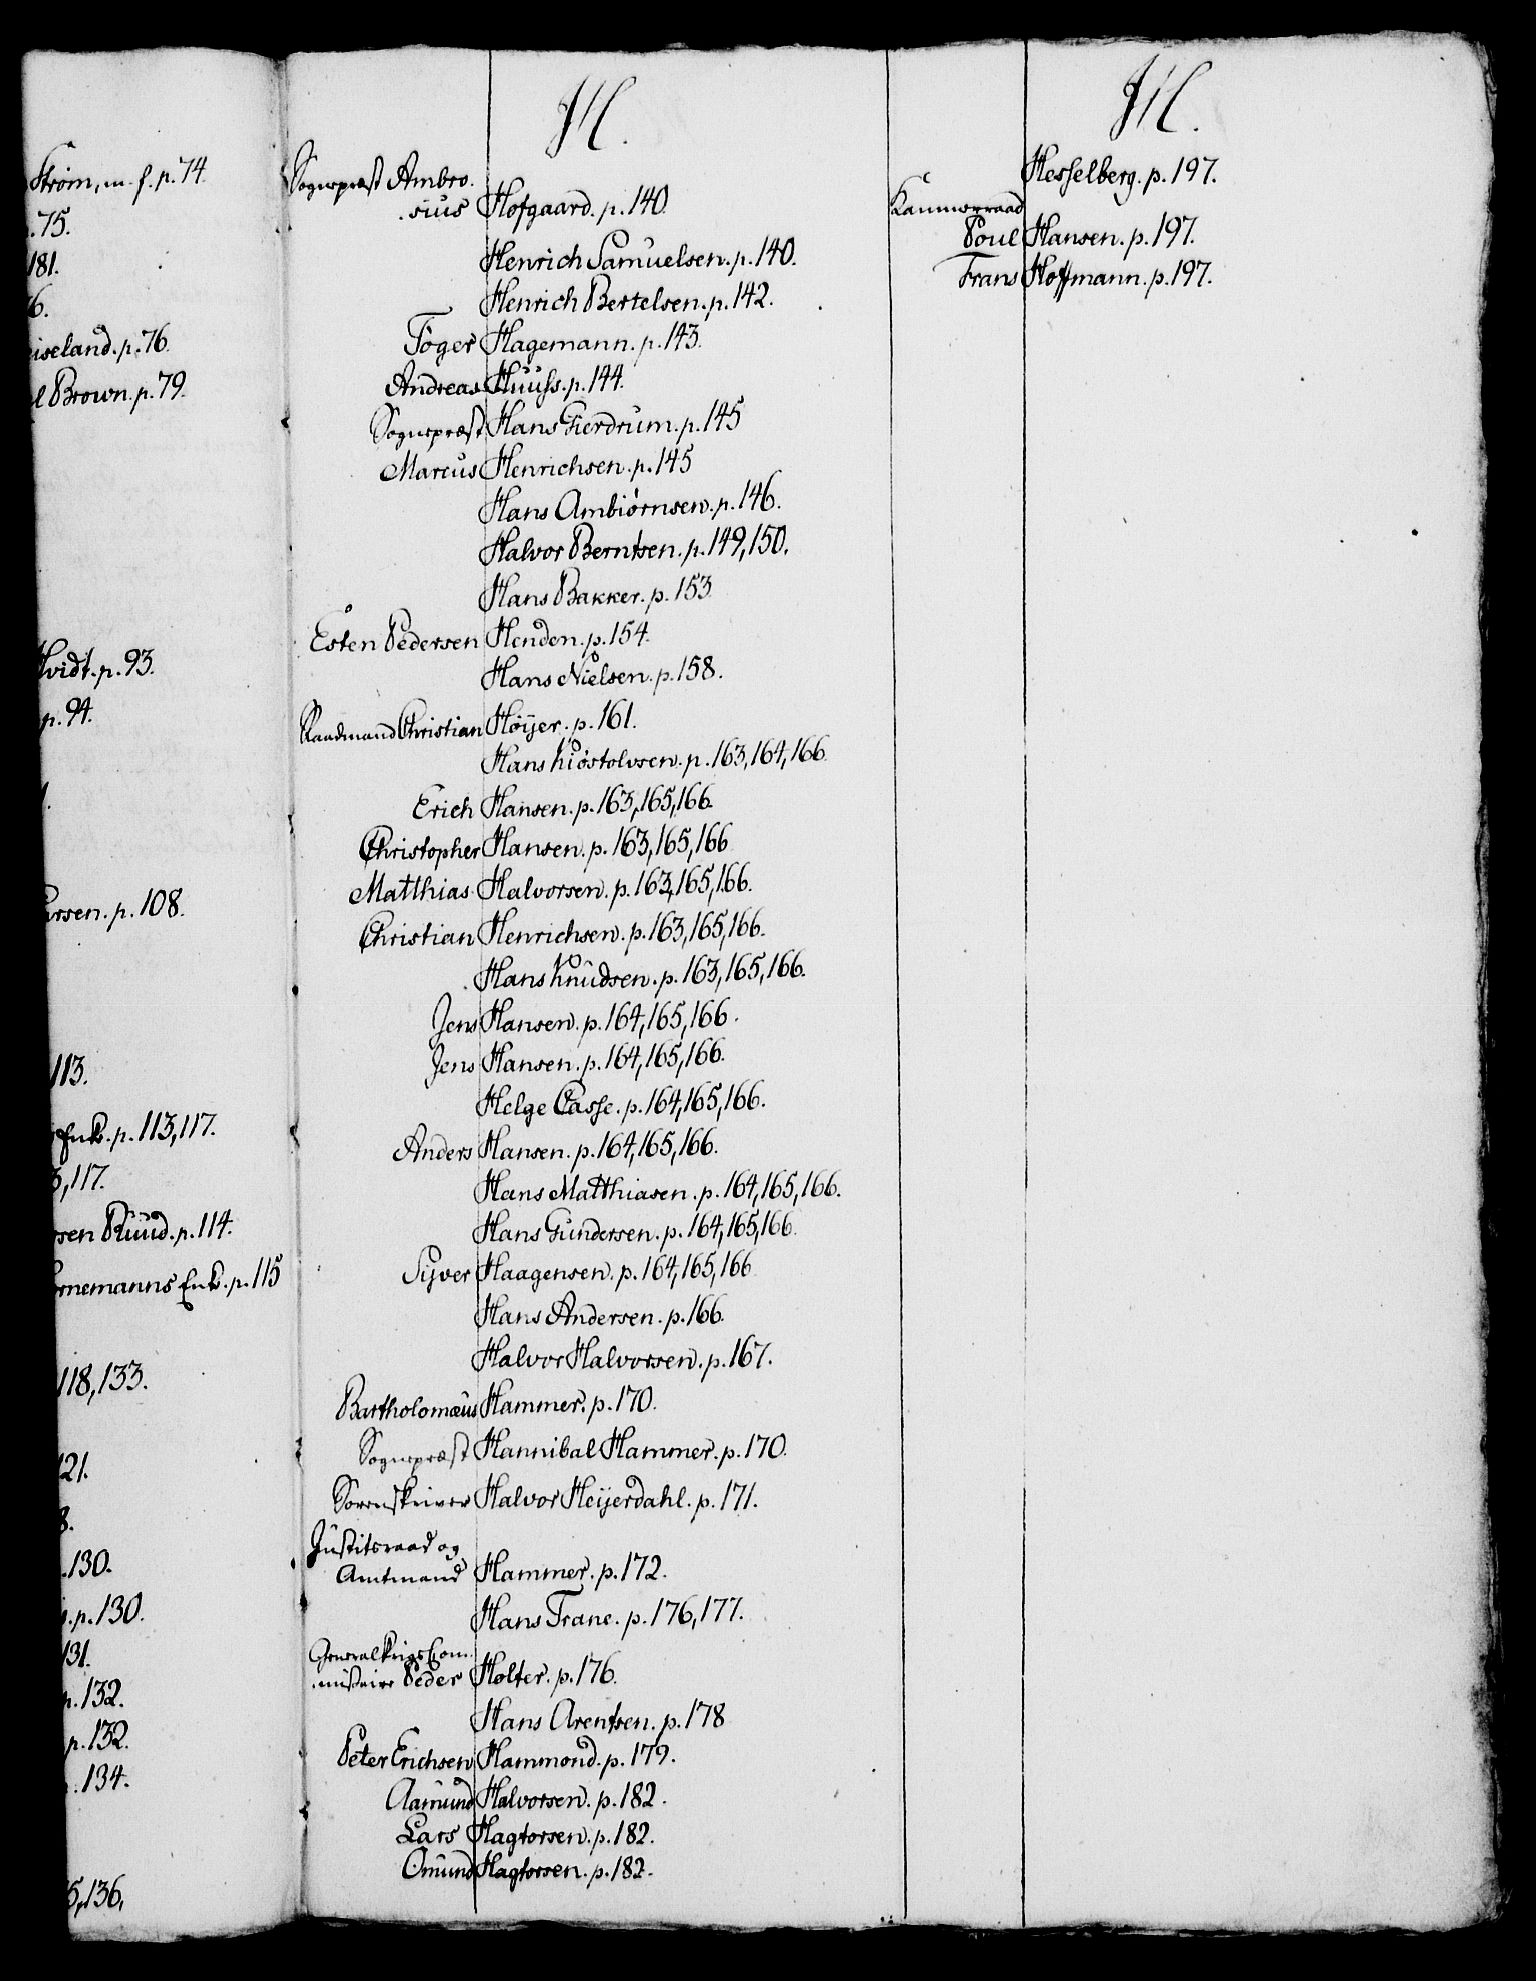 Strøm, m. f. p. 74.
. 75.
181.
6.
iseland. p. 76.
l Brown. p. 79.
Hvidt. p. 93.
p. 94.
arsen. p. 108.
113.
Enke. p. 113, 117.
3, 117.
rsen Ruud. p. 114.
ornemanns Enke. p. 115
118, 133.
121.
8.
. 130.
. p. 130.
131.
p. 132.
p. 132.
. 134.
5, 136,
H.
Sognepræst Ambro-
sius Hofgaard. p. 140.
Henrich Samuelsen. p. 140.
Henrich Bertelsen. p. 142.
Töger Hagemann. p. 143.
Andreas Huuss. p. 144.
Sognepræst Hans Gierdrum. p. 145
Marcus Henrichsen. p. 145
Hans Ambiörnsen. p. 146.
Halvor Berntsen. p. 149, 150.
Hans Bakker. p. 153
Esten Pedersen Henden. p. 154.
Hans Nielsen. p. 158.
Raadmand Christian Höijer. p. 161.
Hans Kiöstolvsen. p. 163, 164, 166.
Erich Hansen. p. 163, 165, 166.
Christopher Hansen. p. 163, 165, 166
Matthias Halvorsen. p. 163, 165, 166.
Christian Henrichsen. p. 163, 165, 166.
Hans Knudsen. p. 163, 165, 166.
Jens Hansen. p. 164, 165, 166.
Jens Hansen. p. 164, 165, 166.
Helge Casse. p. 164, 165, 166.
Anders Hansen. p. 164, 165, 166.
Hans Matthiasen. p. 164, 165, 166.
Hans Gundersen. p. 164, 165, 166.
Sijver Haagensen. p. 164, 165, 166
Hans Andersen. p. 166.
Halvor Halvorsen. p. 167.
Bartholomæus Hammer. p. 170.
Sognepræst Hannibal Hammer. p. 170.
Sorenskriver Halvor Heijerdahl. p. 171.
Justitsraad og
Amtmand Hammer. p. 172.
Hans Trane. p. 176, 177.
GeneralkrigsCom-
missaire Peder Holter. p. 176.
Hans Arentsen. p. 178
Peter Erichsen Hammond. p. 179.
Aamund Halvorsen. p. 182.
Lars Hagtorsen. p. 182.
Omund Hagtorsen. p. 182.
H.
Hesselberg. p. 197.
Kammerraad
Poul Hansen. p. 197.
Frans Hoffmann. p. 197.